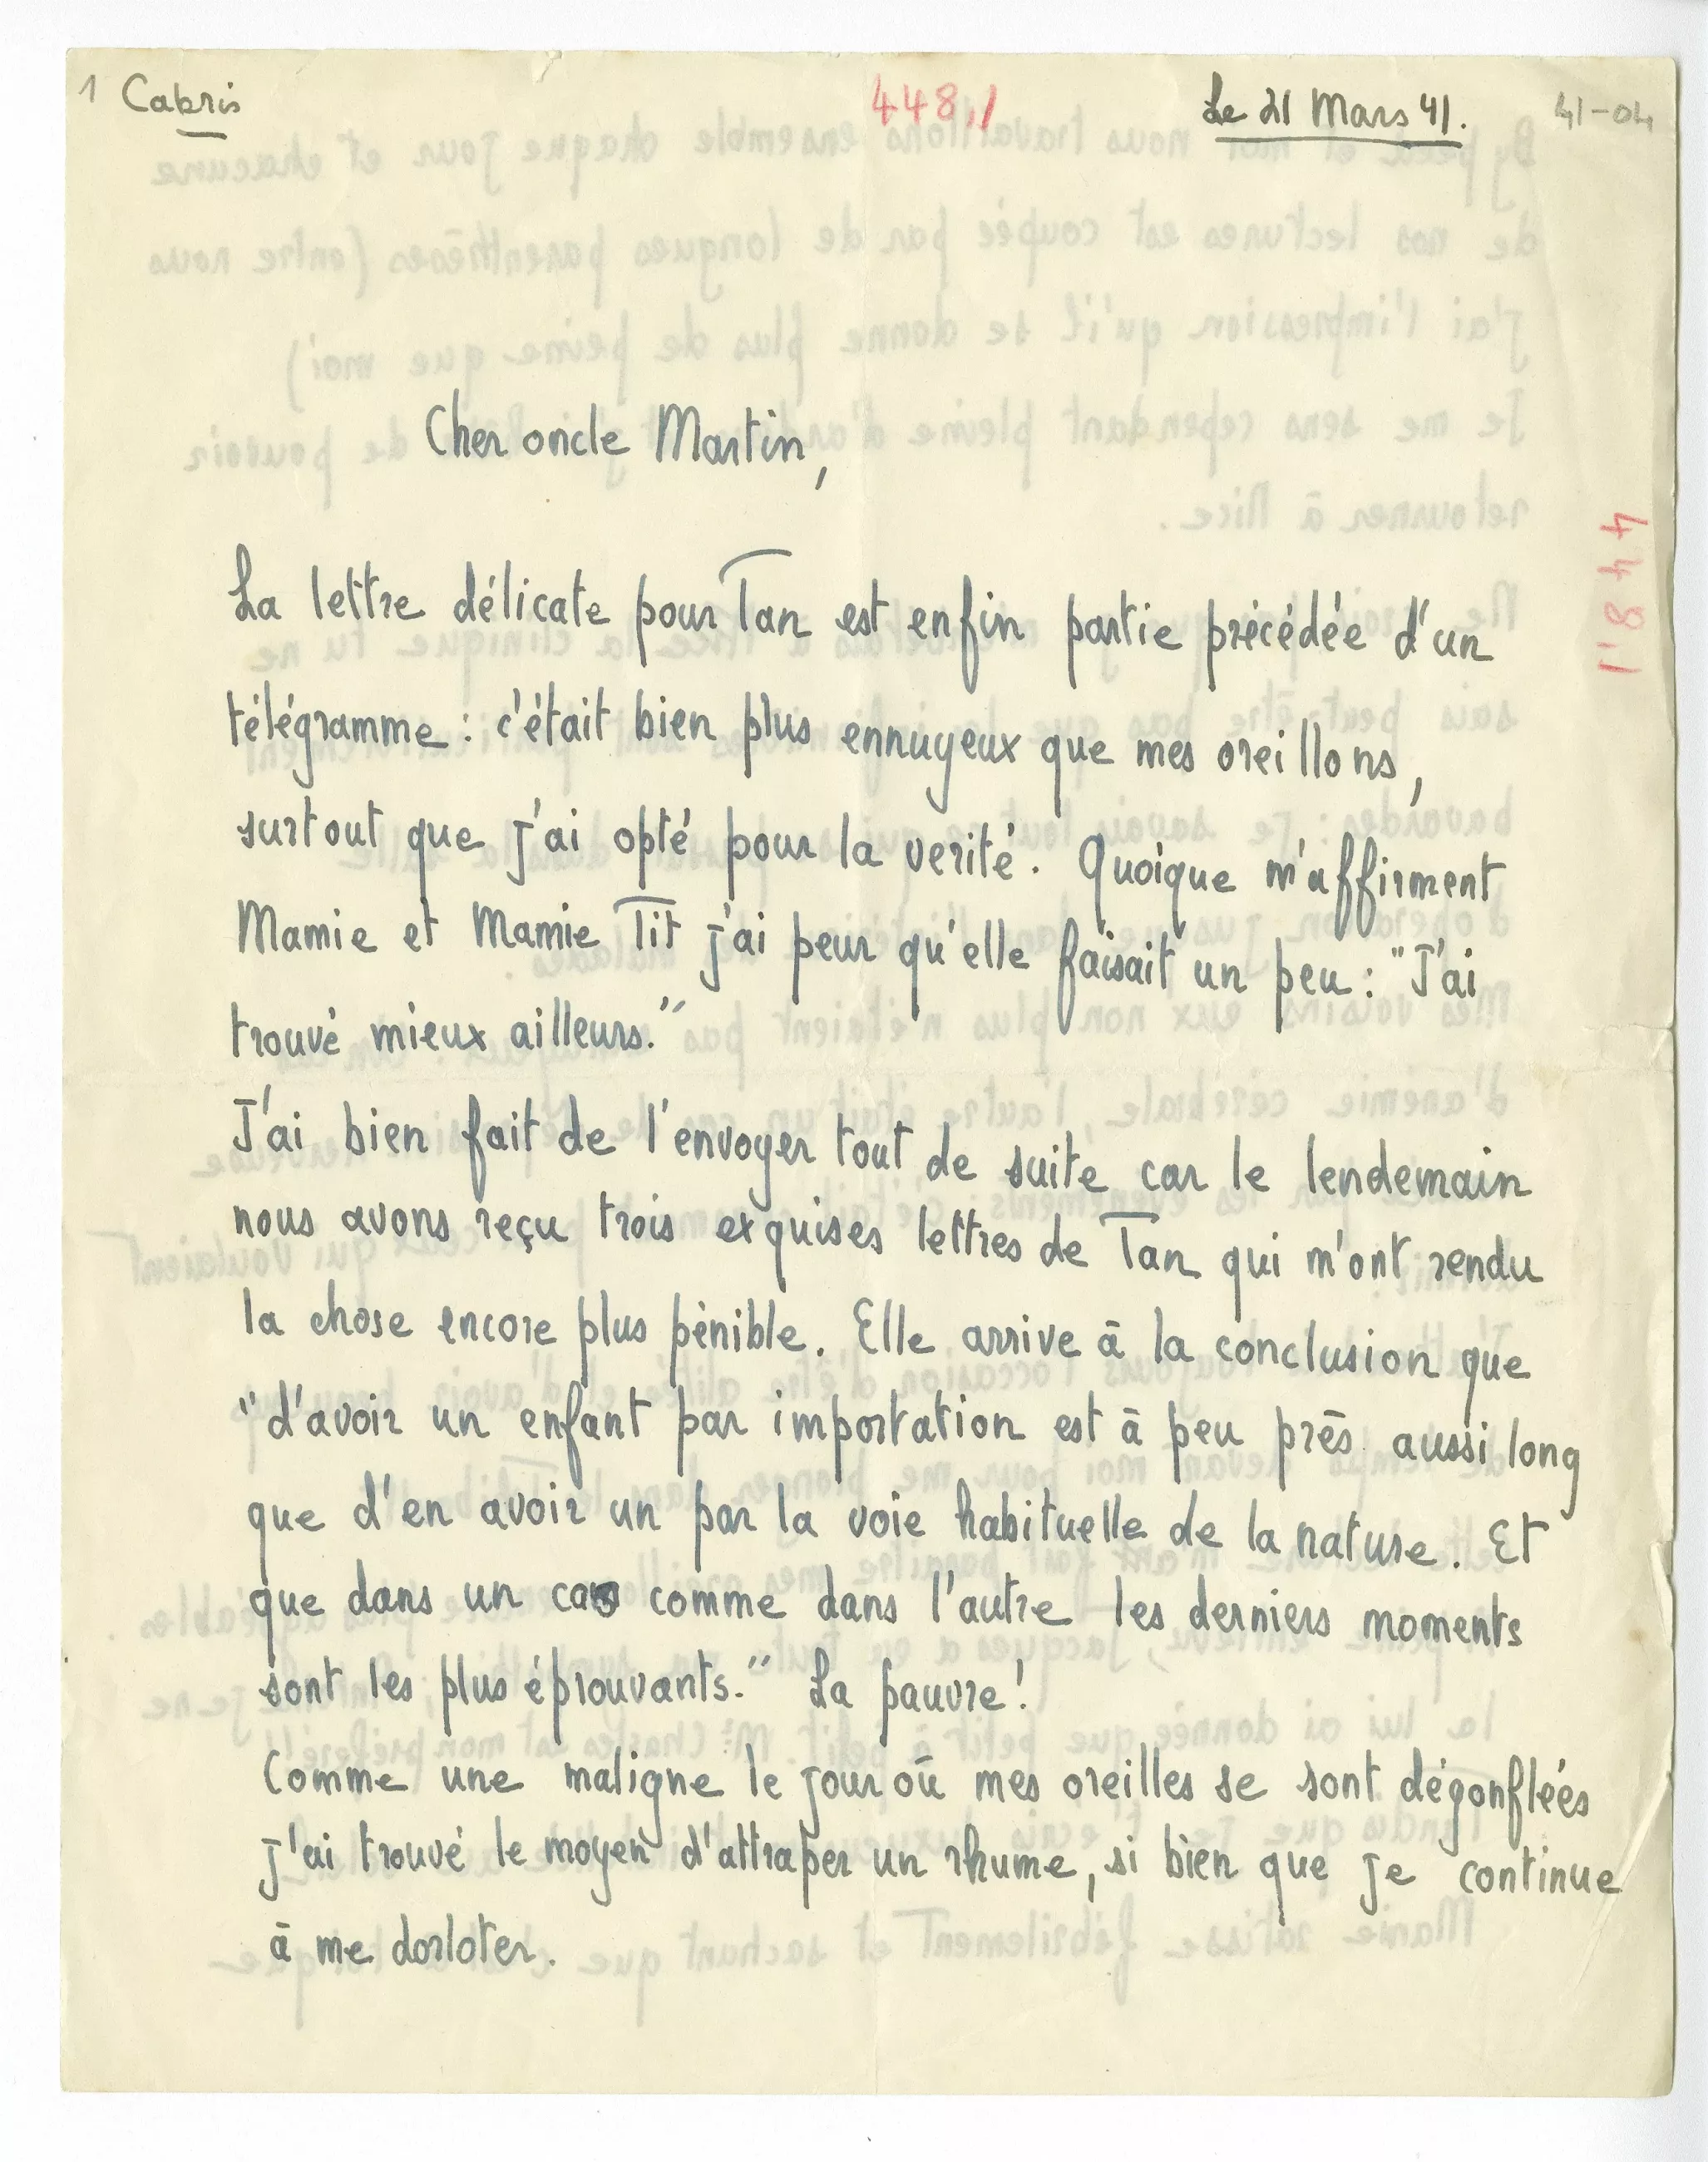 1 Cabris 448,1 Le 21 Mars 41. 41-04
Cher oncle Martin,
448,1
La lettre délicate pour Tan est enfin partie précédée d'un
télégramme : c'était bien plus ennuyeux que mes oreillons,
surtout que j'ai opté pour la verité. Quoique m'affirment
Mamie et Mamie Tit j'ai peur qu'elle faisait un peu : "J'ai
trouvé mieux ailleurs."
J'ai bien fait de l'envoyer tout de suite car le lendemain
nous avons reçu trois exquises lettres de Tan qui m'ont rendu
la chose encore plus pénible. Elle arrive à la conclusion que
"d'avoir un enfant par importation est à peu près aussi long
que d'en avoir un par la voie habituelle de la nature. Et
que dans un cas comme dans l'autre les derniers moments
sont les plus éprouvants." La pauvre !
Comme une maligne le jour où mes oreilles se sont dégonflées
j'ai trouvé le moyen d'attraper un rhume, si bien que je continue
à me dorloter.